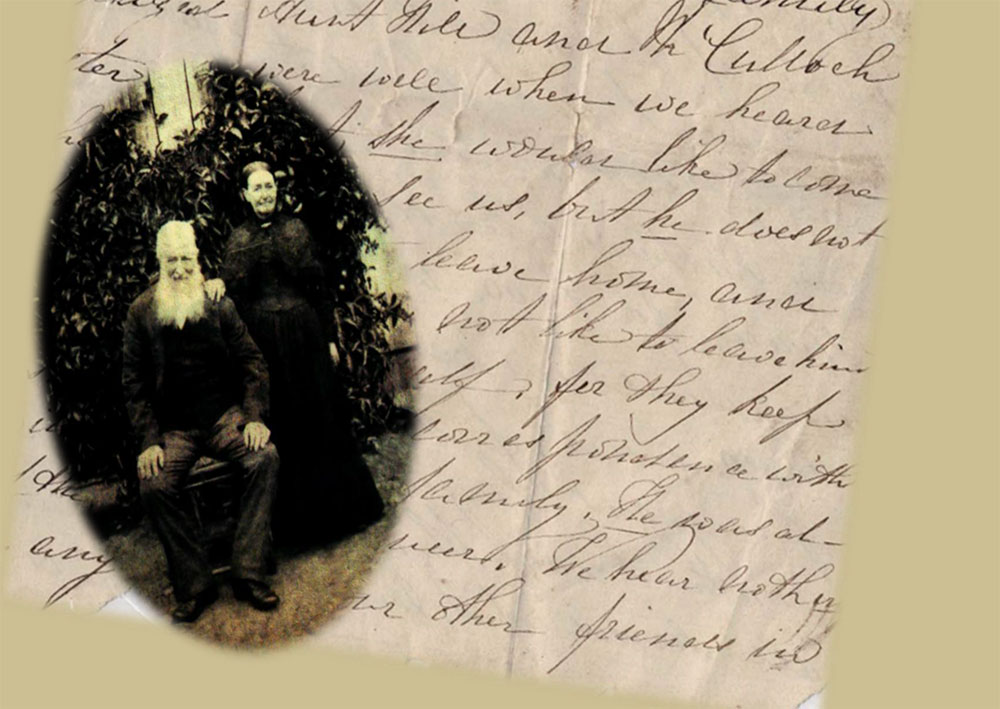 family)
Aunt and McCulloch
were well when we heard
she would like to come
see us, but he does not
leave home, and
not like to leave him
self, for they keep
correspondence with
the family. He was al-
any We hear nothing
our other friends in